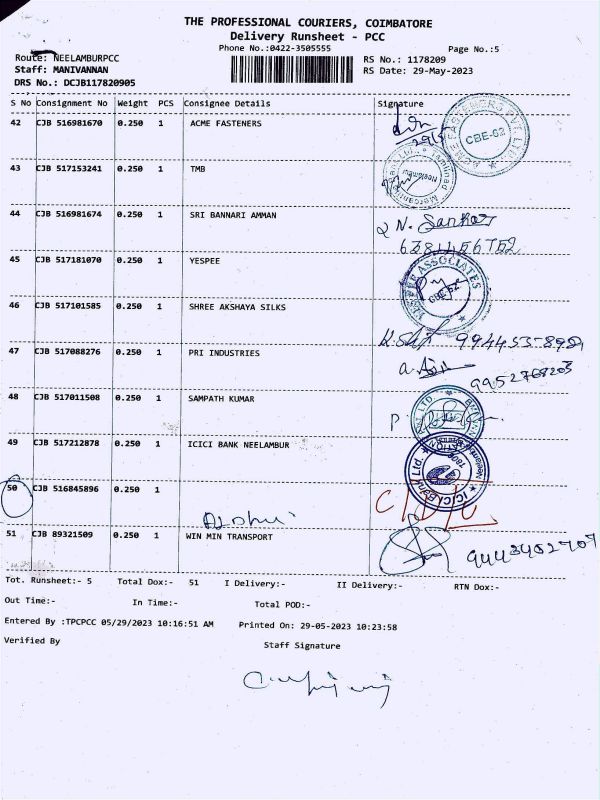 THE PROFESSIONAL COURIERS, COIMBATORE
Delivery Runsheet - PCC
Phone No.:0422-3505555
Page No.:5
Route: NEELAMBURPCC
RS No.: 1178209
Staff: MANIVANNAN
RS Date: 29-May-2023
DRS No.: DCJB117820905
S No Consignment No Weight PCS Consignee Details Signature
42 CJB 516981670 0.250 1 ACME FASTENERS
29/5
ACME FASTENERS PVT. LTD. CBE-62
43 CJB 517153241 0.250 1 TMB
Tamilnad Mercantile Bank Ltd. Neelambur
44 CJB 516981674 0.250 1 SRI BANNARI AMMAN
N. Sankar
45 CJB 517181070 0.250 1 YESPEE
YESPEE ASSOCIATES CBE-62
46 CJB 517101585 0.250 1 SHREE AKSHAYA SILKS
47 CJB 517088276 0.250 1 PRI INDUSTRIES
9952768203
48 CJB 517011508 0.250 1 SAMPATH KUMAR
49 CJB 517212878 0.250 1 ICICI BANK NEELAMBUR
ICICI Bank Ltd. Neelambur
50 CJB 516845896 0.250 1
51 CJB 89321509 0.250 1 WIN MIN TRANSPORT
Tot. Runsheet:- 5 Total Dox:- 51 I Delivery:- II Delivery:- RTN Dox:-
Out Time:- In Time:- Total POD:-
Entered By :TPCPCC 05/29/2023 10:16:51 AM Printed On: 29-05-2023 10:23:58
Verified By Staff Signature